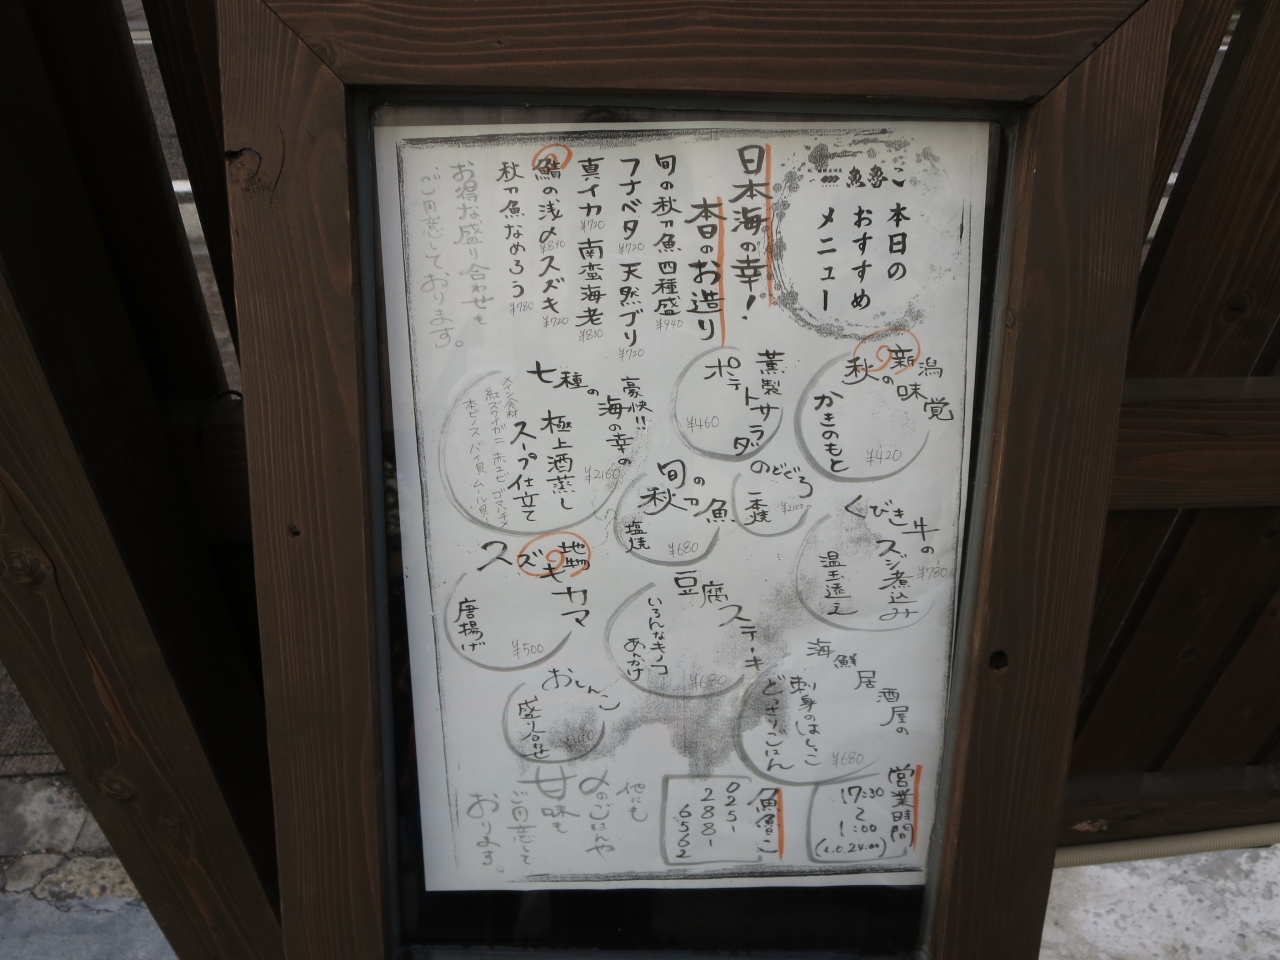 本日の
おすすめ
メニュー
日本海の幸!
本日のお造り
旬の秋刀魚四種盛 ¥940
フナベタ ¥720 天然ブリ ¥720
真イカ ¥720 南蛮海老 ¥830
鯖の浅〆 ¥830 スズキ ¥720
秋刀魚なめろう ¥780
お得な盛り合わせも
ご用意しております。
新潟
秋の味覚
かきのもと
¥420
薫製サラダ
ポテト
¥460
豪快!!
七種の海の幸の
極上酒蒸し
スープ仕立て
¥2160
メイン食材
のどぐろ
一本焼
旬の
秋刀魚
塩焼
¥680
くびき牛の
スジ煮込み
温玉添え
¥780
地物
スズキカマ
唐揚げ
¥500
豆腐ステーキ
いろんなキノコ
あんかけ
¥680
海鮮居酒屋の
刺身のはしっこ
どっさりごはん
¥680
おしんこ
盛り合せ
営業時間
17:30
1:00
(L.O.24:00)
025-
288-
6562
他にも
〆のごはんや
甘味も
ご用意して
おります。